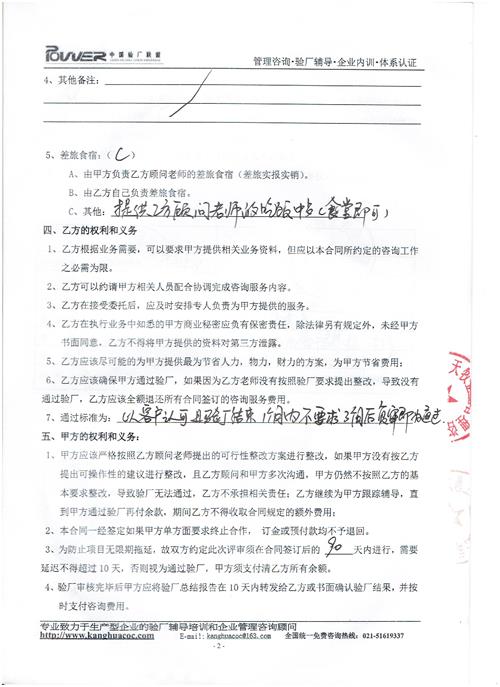 POWER 中国验厂联盟
管理咨询·验厂辅导·企业内训·体系认证
4、其他备注：
5、差旅食宿：（C）
A、由甲方负责乙方顾问老师的差旅食宿（差旅实报实销）。
B、由乙方自己负责差旅食宿。
C、其他：提供乙方顾问老师的吃饭（食堂即可）
四、乙方的权利和义务
1、乙方根据业务需要，可以要求甲方提供相关业务资料，但应以本合同所约定的咨询工作
之必需为限。
2、乙方可以约请甲方相关人员配合协调完成咨询服务内容。
3、乙方在接受委托后，应及时安排专人负责为甲方提供的服务。
4、乙方在执行业务中知悉的甲方商业秘密应负有保密责任，除法律另有规定外，未经甲方
书面同意，乙方不得将甲方提供的资料对第三方泄露。
5、乙方应该尽可能的为甲方提供最为节省人力，物力，财力的方案，为甲方节省费用；
6、乙方应该确保甲方通过验厂，如果因为乙方老师没有按照验厂要求提出整改，导致没有
通过验厂，乙方应该全额退还所有合同签订的咨询服务费用。
7、通过标准为：以客户认可且验厂结束
五、甲方的权利和义务：
1、甲方应该严格按照乙方顾问老师提出的可行性整改方案进行整改，如果甲方没有按乙方
提出可操作性的建议进行整改，且乙方顾问和甲方多次沟通，甲方仍然不按照乙方的基
本要求整改，导致验厂无法通过，乙方不承担相关责任；乙方继续为甲方跟踪辅导，直
到甲方通过验厂再付余款，期间乙方不得收取合同规定的额外费用；
2、本合同一经签定如果甲方单方面要求终止合作，订金或预付款均不予退回。
3、为防止项目无限期拖延，故双方约定此次评审须在合同签订后的 90 天内进行，需要
延迟不得超过 10 天，否则视为通过验厂，甲方须支付清乙方所有余额。
4、验厂审核完毕后甲方应将验厂总结报告在 10 天内转发给乙方或书面确认验厂结果，并按
时支付咨询费用。
专业致力于生产型企业的验厂辅导培训和企业管理咨询顾问
http://www.kanghuacoc.com E-mail：kanghuacoc@163.com 全国统一免费咨询热线：021-51619337
- 2 -